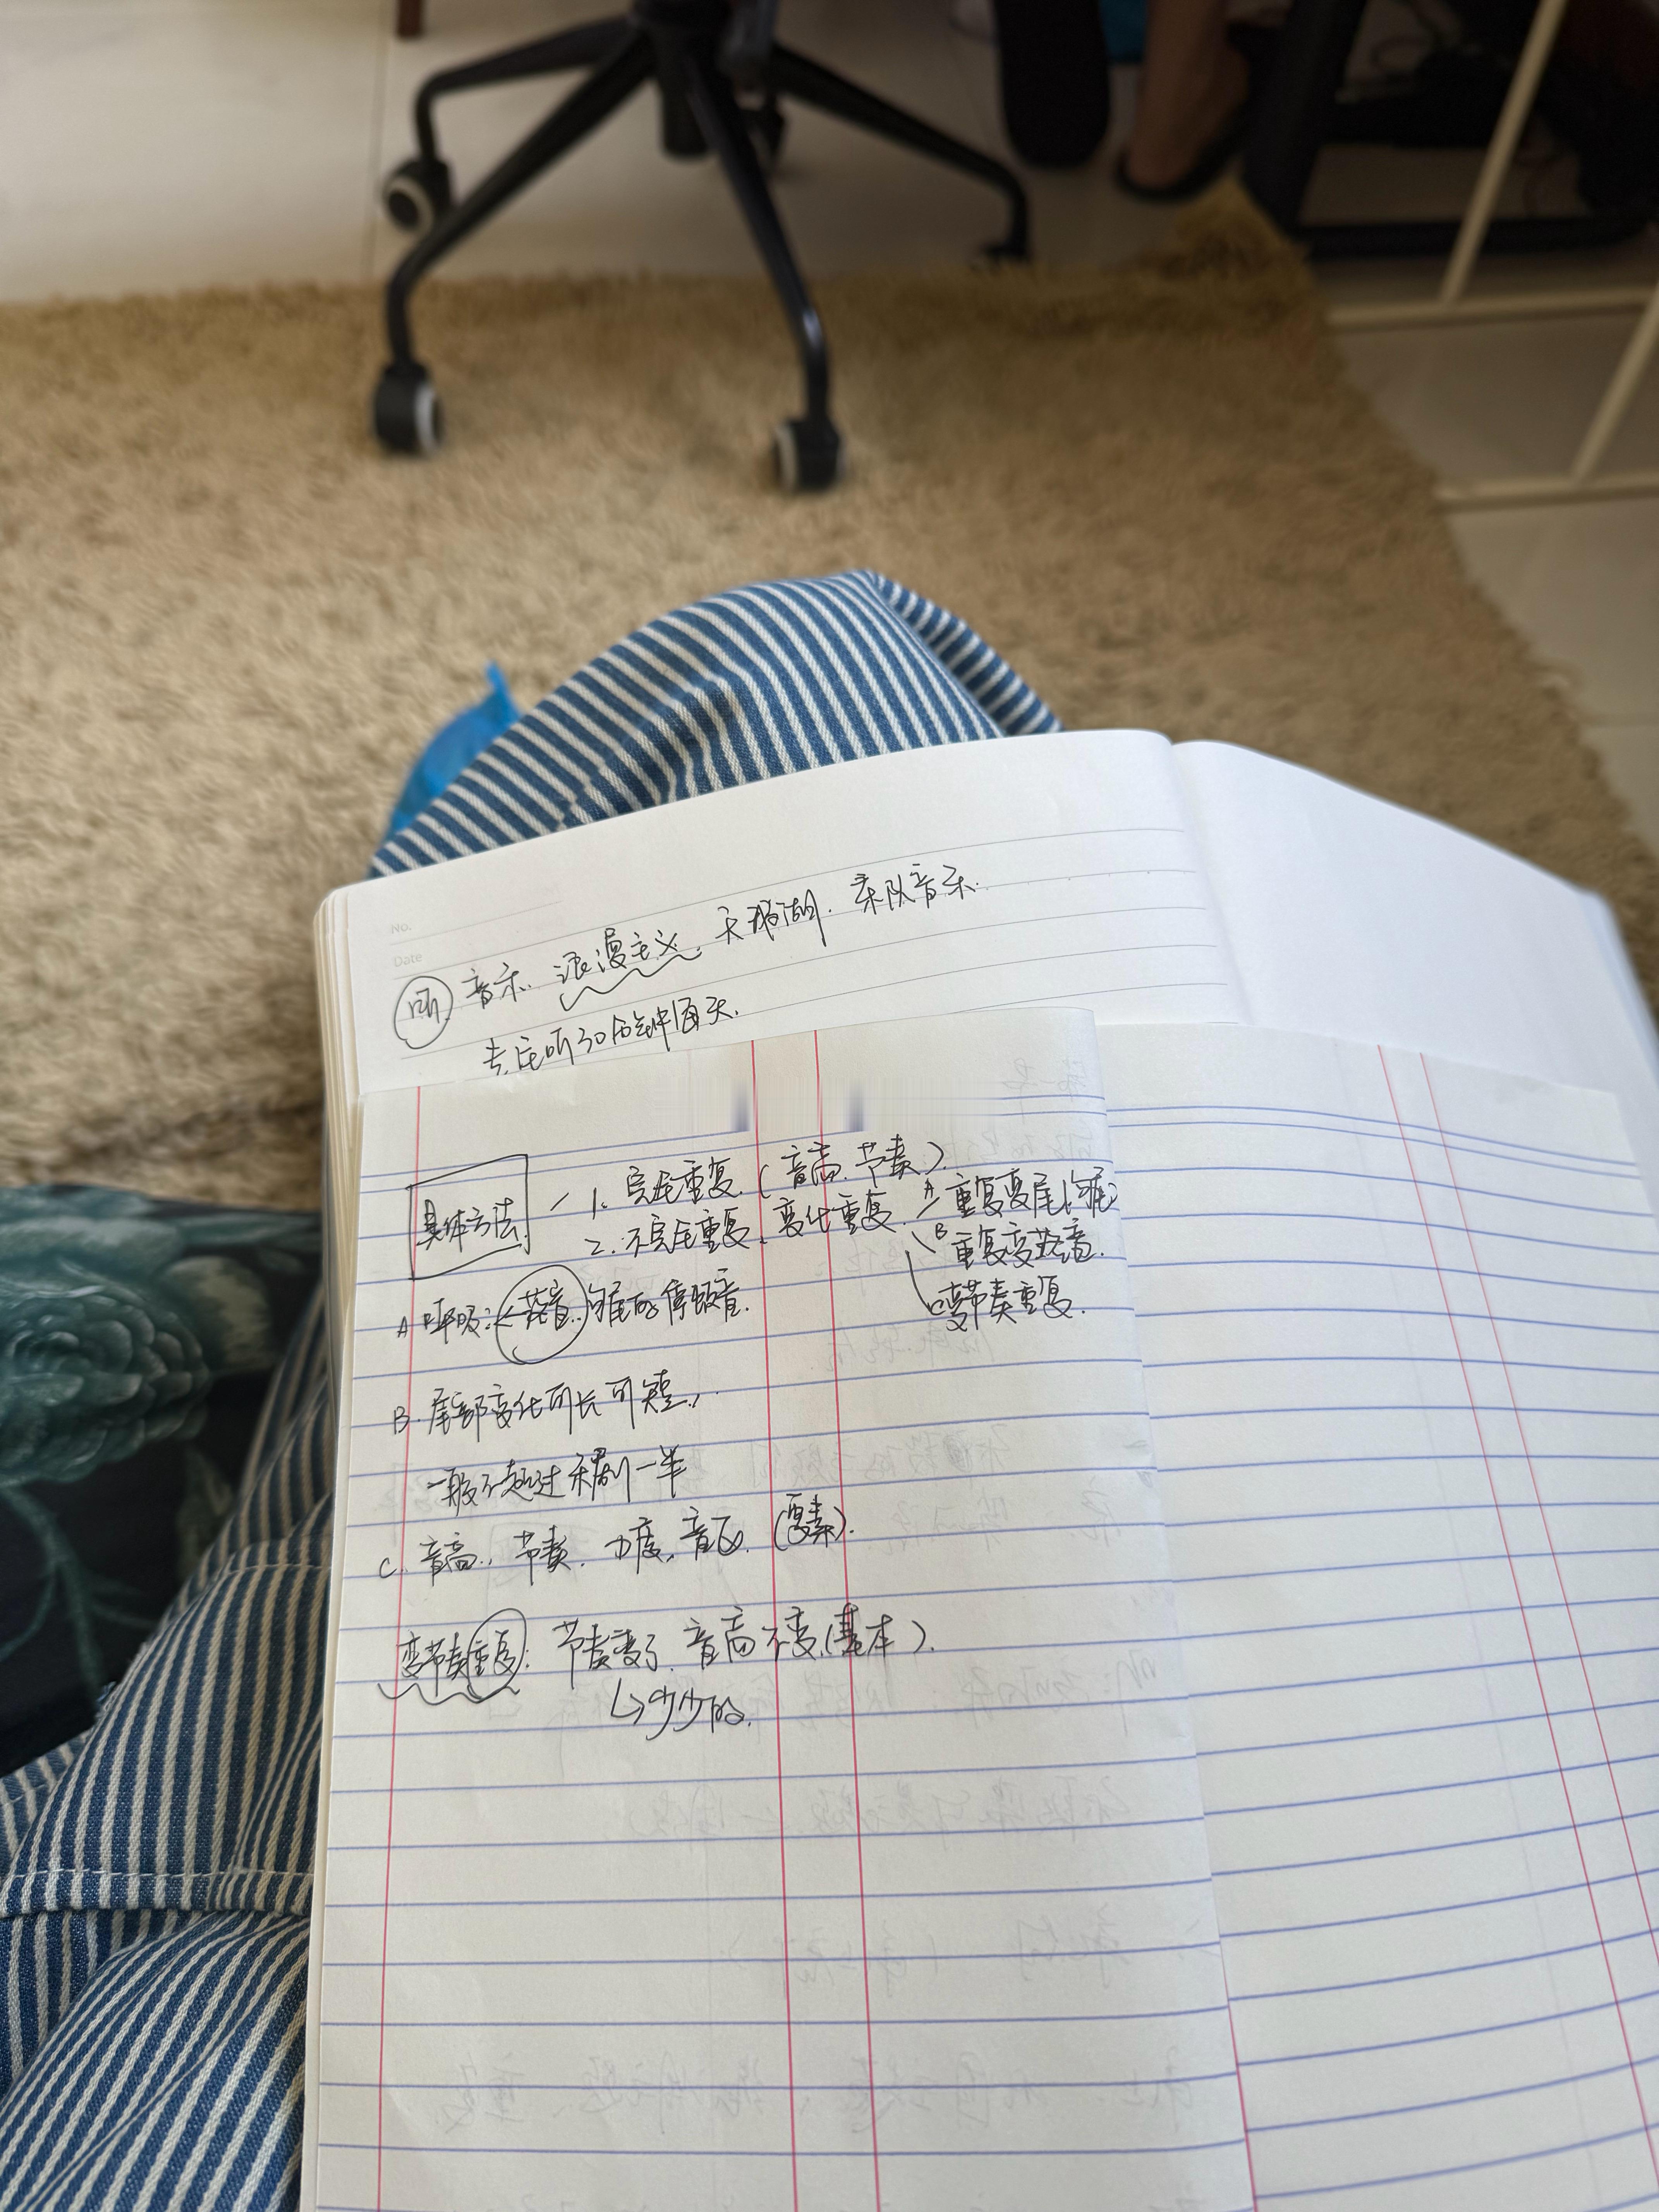 No.
Date
听 音乐. 浪漫主义. 天鹅湖. 乐队音乐.
专注听30分钟每天.
具体方法 1. 完全重复. (音高. 节奏).
2. 不完全重复. 变化重复. A 重复变尾
B 重复变
变节奏重复.
A 呼吸: 句尾的停顿音.
B. 尾部变化可长可短,
一般不超过 一半
C. 音高., 节奏. 力度, 音区. (要素).
变节奏重复: 节奏变了. 音高不变(基本).
↳少少的.